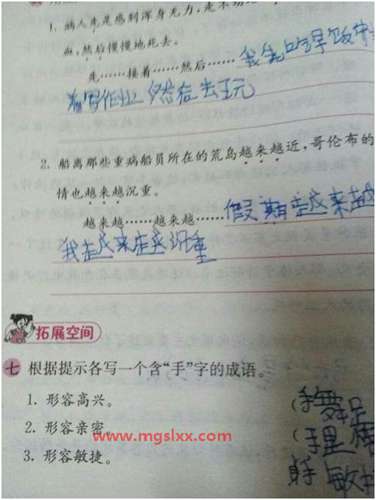 1. 病人先是感到浑身无力,走不动
血,然后慢慢地死去。
先……接着……然后……我先吃早饭
着写作业 然后去玩
2. 船离那些重病船员所在的荒岛越来越近,哥伦布的
情也越来越沉重。
越来越……越来越……假期越来越
我越来越沉重
拓展空间
七 根据提示各写一个含“手”字的成语。
1. 形容高兴。 (手舞足
2. 形容亲密。 (手
3. 形容敏捷。 身手敏捷
www.mgslxx.com